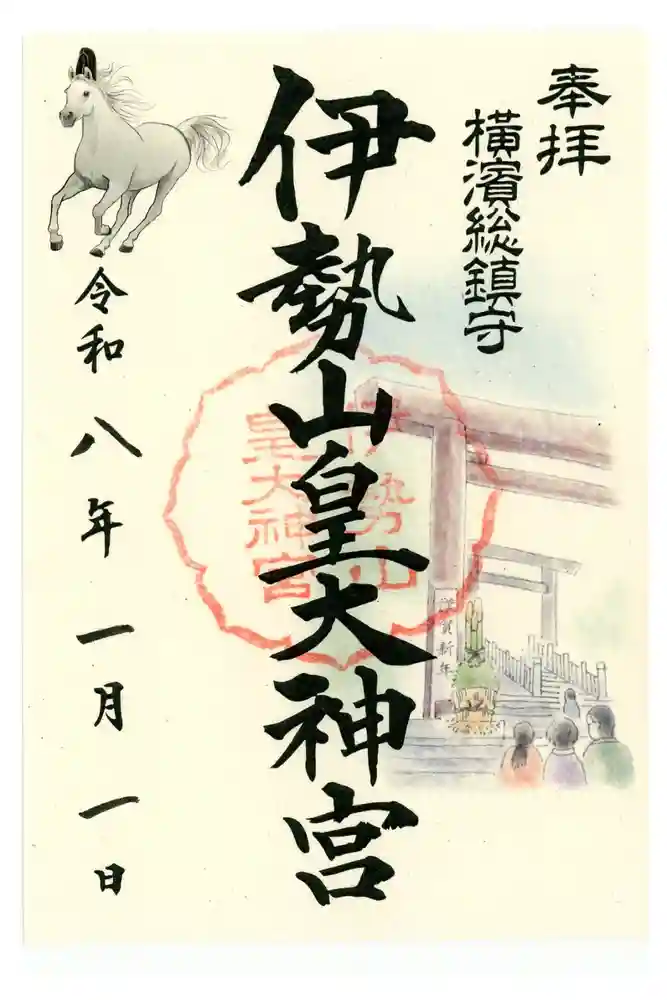 奉拝
横濱総鎮守
伊勢山皇大神宮
伊勢山
皇大神宮
謹賀新年
令和八年一月一日